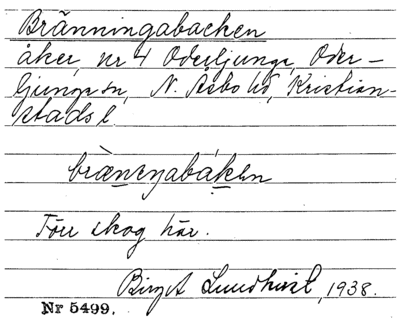 Bränningabacken
åker, nr 4 Oderljunga, Oder-
ljunga sn, N. Åsbo hd, Kristian-
stads l.
bræ̀nengabákɛn
Förr skog här.
Birgit Lundkvist, 1938.
Nr 5499.